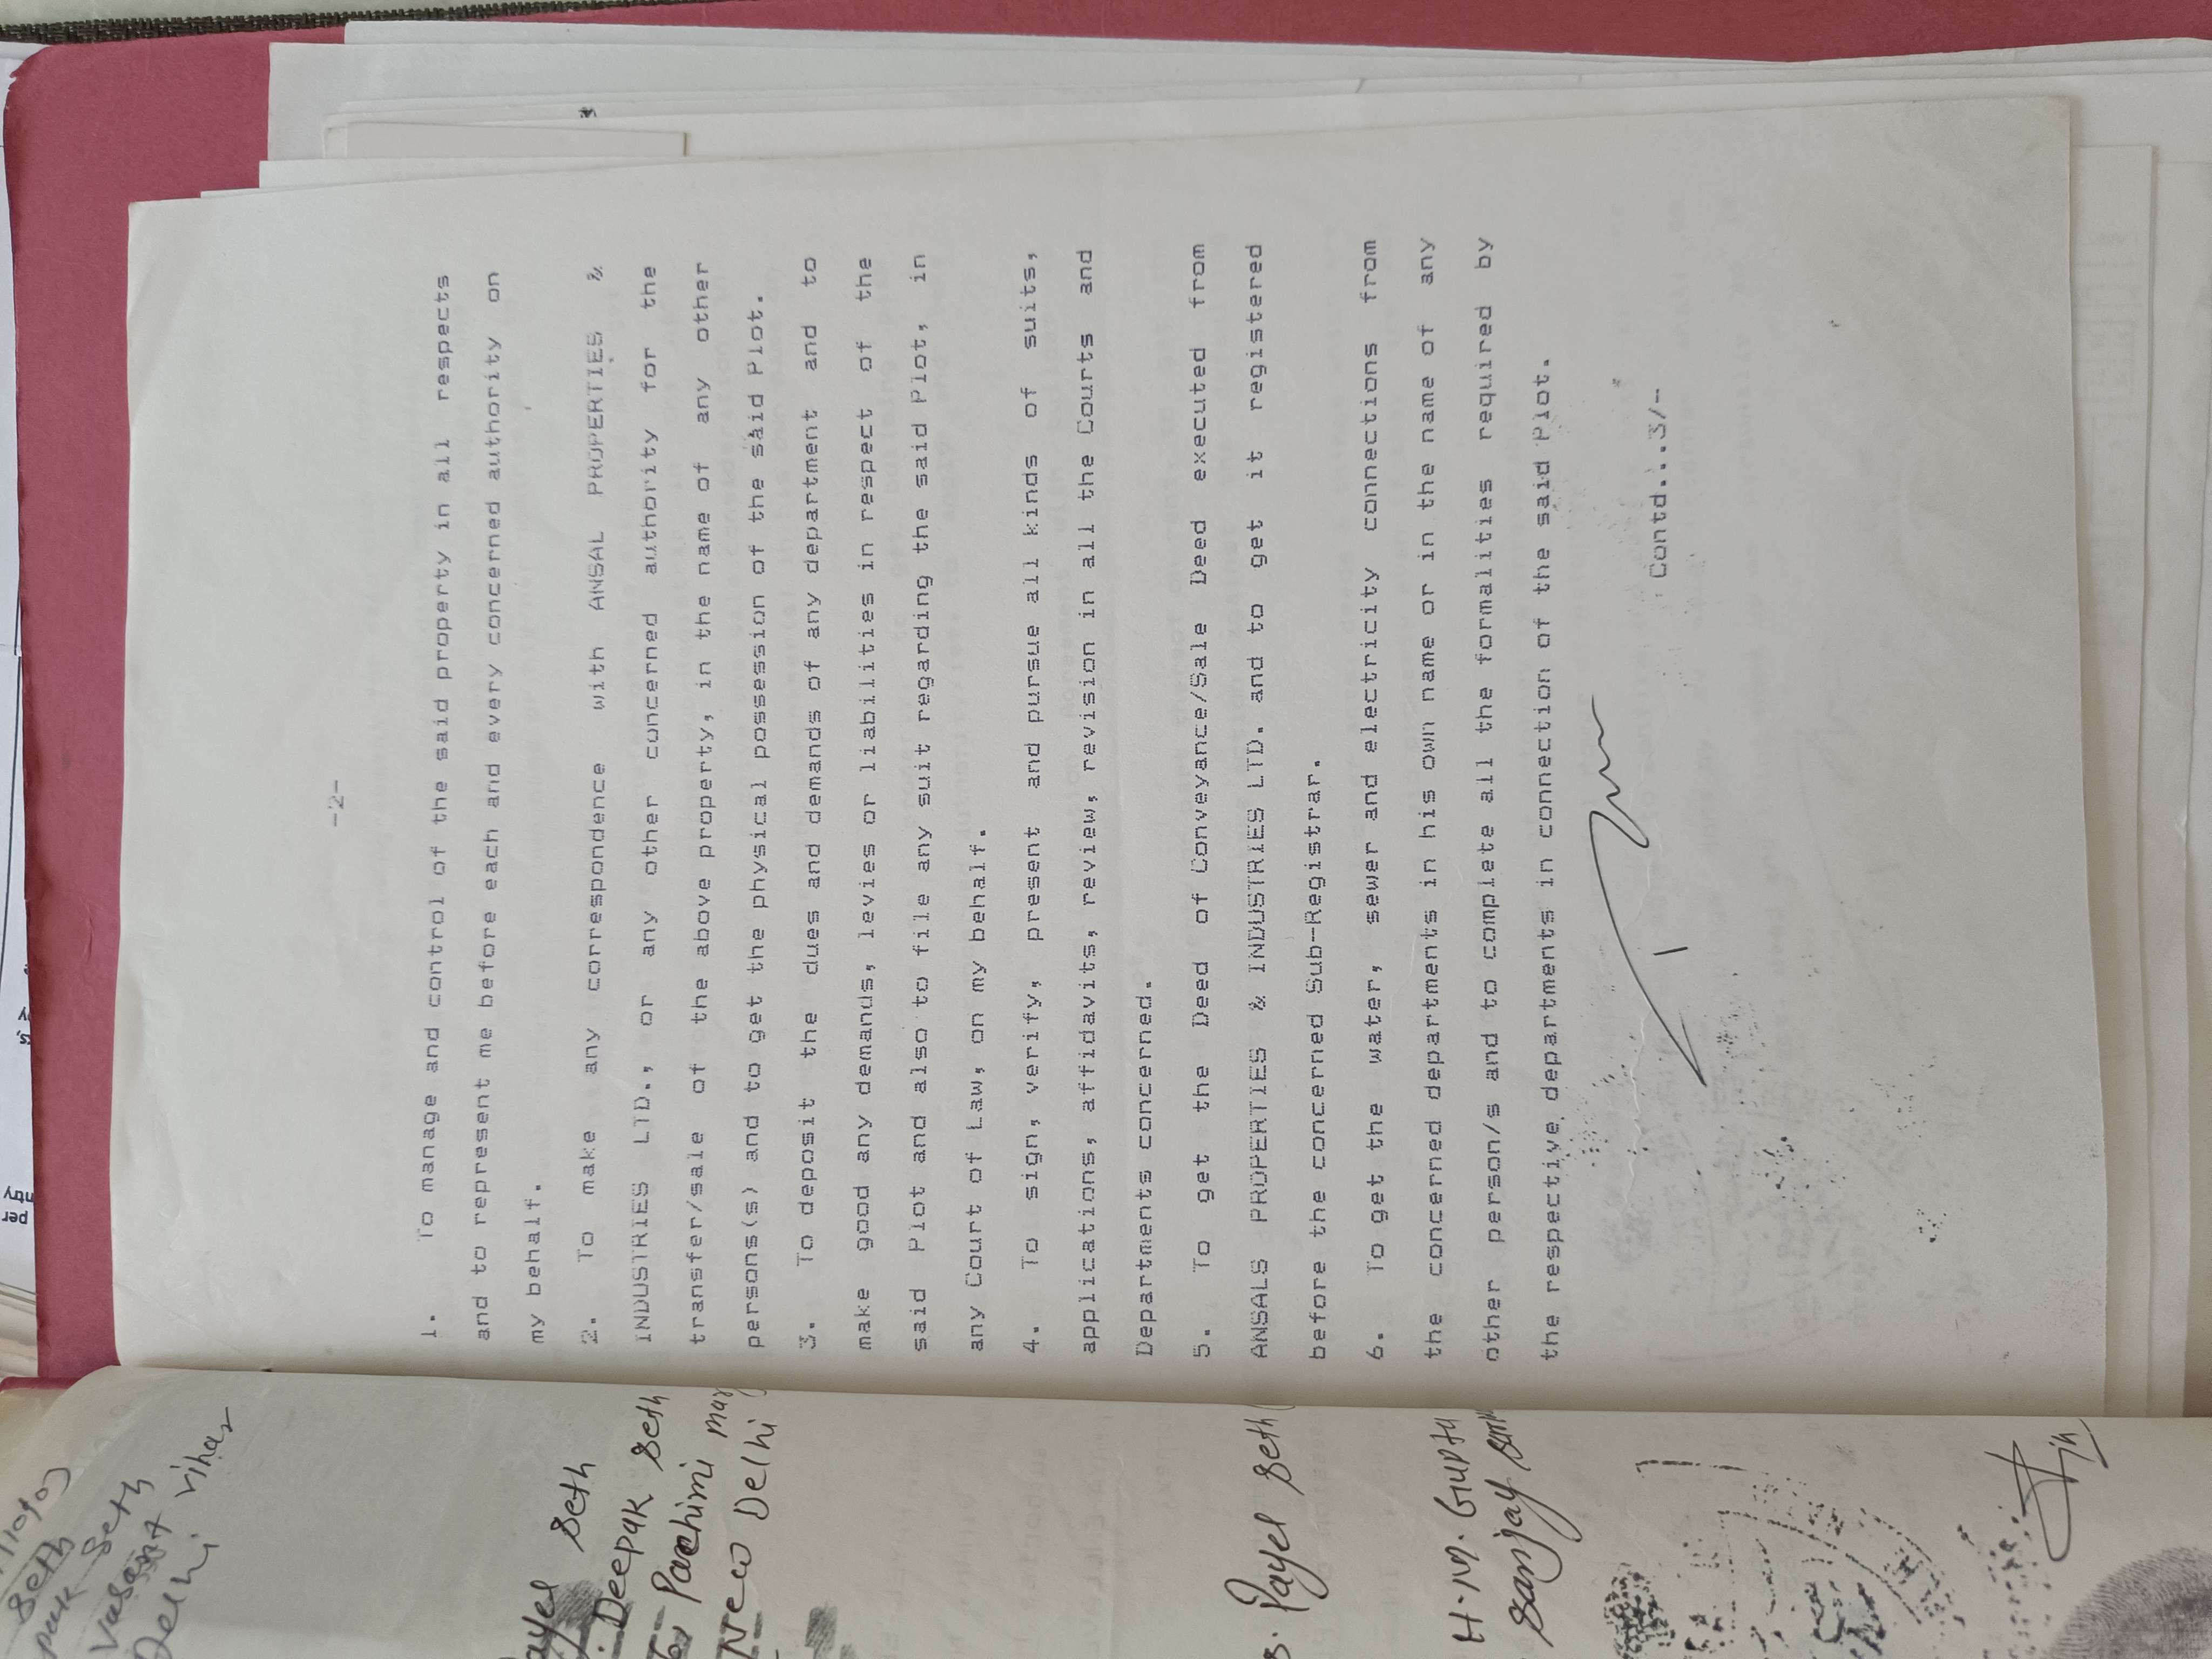 -2-
1. To manage and control of the said property in all respects
and to represent me before each and every concerned authority on
my behalf.
2. To make any correspondence with ANSAL PROPERTIES &
INDUSTRIES LTD., or any other concerned authority for the
transfer/sale of the above property, in the name of any other
persons(s) and to get the physical possession of the said Plot.
3. To deposit the dues and demands of any department and to
make good any demands, levies or liabilities in respect of the
said Plot and also to file any suit regarding the said Plot, in
any Court of Law, on my behalf.
4. To sign, verify, present and pursue all kinds of suits,
applications, affidavits, review, revision in all the Courts and
Departments concerned.
5. To get the Deed of Conveyance/Sale Deed executed from
ANSALS PROPERTIES & INDUSTRIES LTD. and to get it registered
before the concerned Sub-Registrar.
6. To get the water, sewer and electricity connections from
the concerned departments in his own name or in the name of any
other person/s and to complete all the formalities required by
the respective departments in connection of the said Plot.
Contd....3/-
Seth
Seth
Vasant Vihar
Delhi
Seth
Deepak Seth
Paschimi
New Delhi
Payel Seth
H.M. Gupta
Sanjay